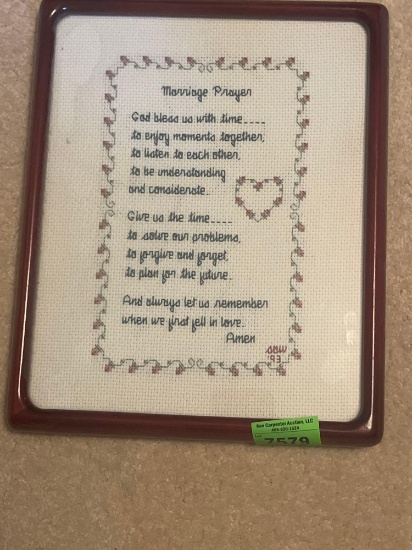 Marriage Prayer
God bless us with time____
to enjoy moments together,
to listen to each other,
to be understanding
and considerate.
Give us the time____
to solve our problems,
to forgive and forget,
to plan for the future.
And always let us remember
when we first fell in love.
Amen
SAW
'93
Carpenter Auction, LLC
7579